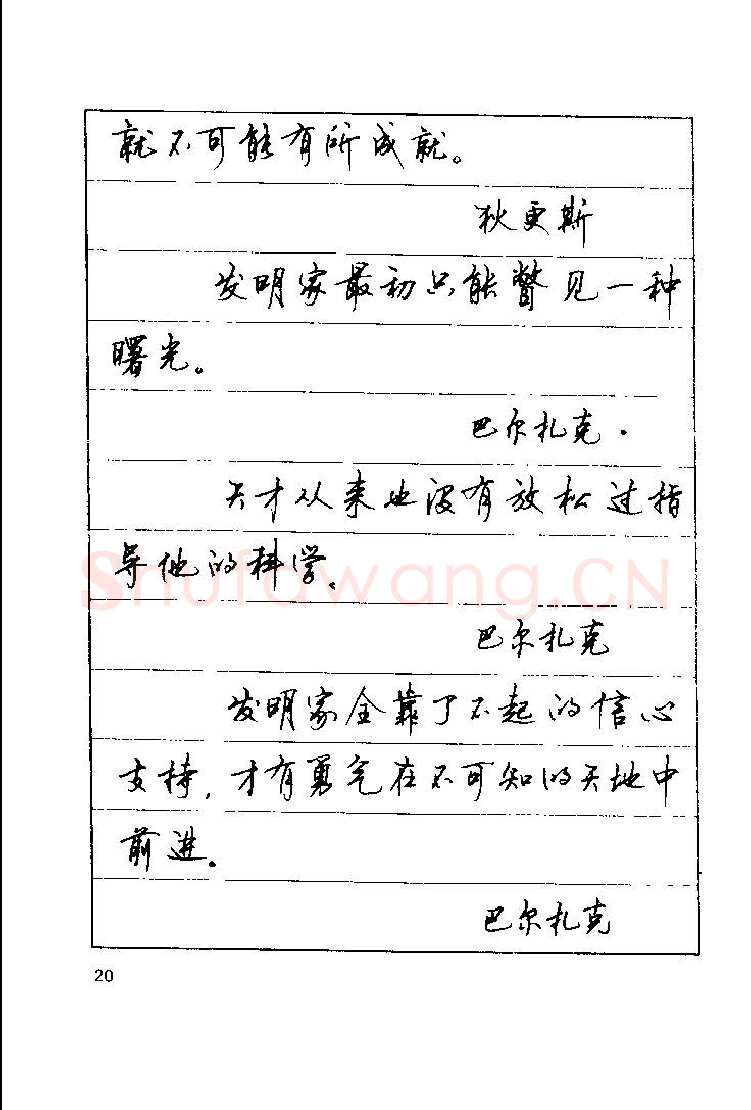 就不可能有所成就。
狄更斯
发明家最初只能瞥见一种
曙光。
巴尔扎克.
天才从来也没有放松过指
导他的科学。
Shufawang.CN
巴尔扎克
发明家全靠了不起的信心
支持,才有勇气在不可知的天地中
前进。
巴尔扎克
20